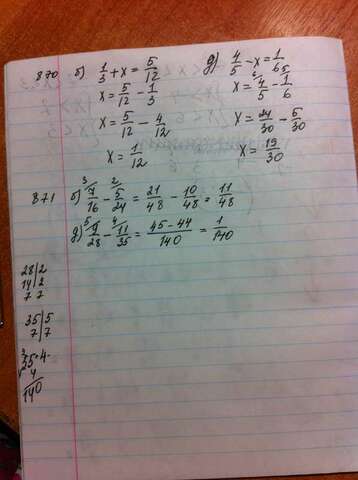 870 б) 1/3 + x = 5/12
x = 5/12 - 1/3
x = 5/12 - 4/12
x = 1/12
д) 4/5 - x = 1/6
x = 4/5 - 1/6
x = 24/30 - 5/30
x = 19/30
871 б) 7/16 - 5/24 = 21/48 - 10/48 = 11/48
д) 9/28 - 11/35 = (45-44)/140 = 1/140
28|2
14|2
7 7
35|5
7|7
35·4
4
140